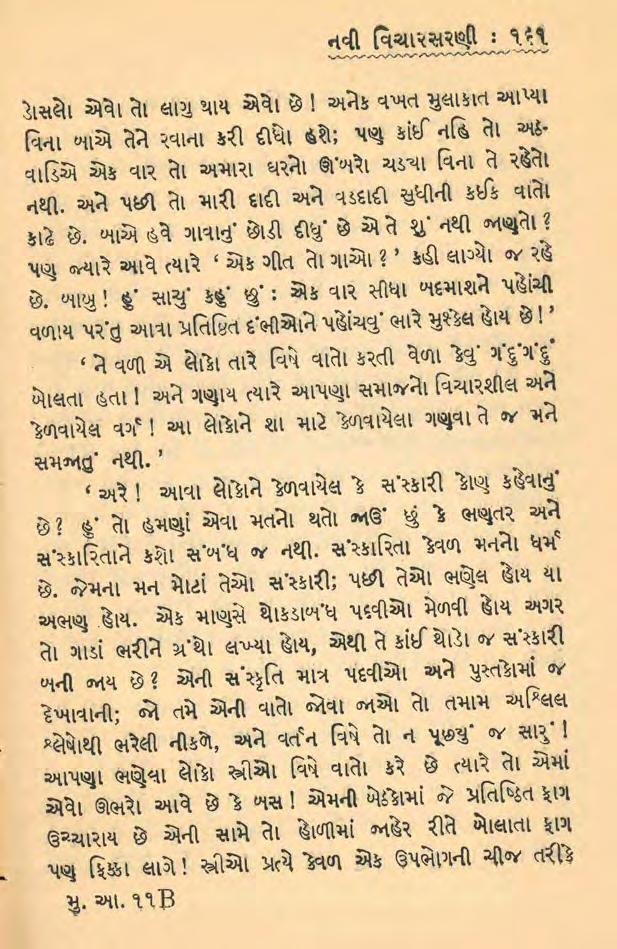 નવી વિચારસરણી : ૧૬૧
ડોસલો એવો તો લાગુ થાય એવો છે! અનેક વખત મુલાકાત આપ્યા
વિના બાએ તેને રવાના કરી દીધો હશે; પણ કાંઈ નહિ તો અઠ-
વાડિએ એક વાર તો અમારા ઘરનો ઊંબરો ચડ્યા વિના તે રહેતો
નથી. અને પછી તો મારી દાદી અને વડદાદી સુધીની કઈક વાતો
કાઢે છે. બાએ હવે ગાવાનું છોડી દીધું છે એ તે શું નથી જાણતો?
પણ જ્યારે આવે ત્યારે ‘ એક ગીત તો ગાઓ ? ’ કહી લાગ્યો જ રહે
છે. બાબુ ! હું સાચું કહું છું : એક વાર સીધા બદમાશને પહોંચી
વળાય પરંતુ આવા પ્રતિષ્ઠિત દંભીઓને પહોંચવું ભારે મુશ્કેલ હોય છે!’
‘ ને વળી એ લોકો તારે વિષે વાતો કરતી વેળા કેવું ગંદુંગંદું
બોલતા હતા! અને ગણાય ત્યારે આપણા સમાજનો વિચારશીલ અને
કેળવાયેલ વર્ગ! આ લોકોને શા માટે કેળવાયેલા ગણવા તે જ મને
સમજાતું નથી. ’
‘ અરે! આવા લોકોને કેળવાયેલ કે સંસ્કારી કોણ કહેવાનું
છે? હું તો હમણાં એવા મતનો થતો જાઉં છું કે ભણતર અને
સંસ્કારિતાને કશો સંબંધ જ નથી. સંસ્કારિતા કેવળ મનનો ધર્મ
છે. જેમના મન મોટાં તેઓ સંસ્કારી; પછી તેઓ ભણેલ હોય યા
અભણ હોય. એક માણસે થોકડાબંધ પદવીઓ મેળવી હોય અગર
તો ગાડાં ભરીને ગ્રંથો લખ્યા હોય, એથી તે કાંઈ થોડો જ સંસ્કારી
બની જાય છે? એની સંસ્કૃતિ માત્ર પદવીઓ અને પુસ્તકોમાં જ
દેખાવાની; જો તમે એની વાતો જોવા જાઓ તો તમામ અશ્લિલ
શ્લેષોથી ભરેલી નીકળે, અને વર્તન વિષે તો ન પૂછ્યું જ સારું!
આપણા ભણેલા લોકો સ્ત્રીઓ વિષે વાતો કરે છે ત્યારે તો એમાં
એવો ઊભરો આવે છે કે બસ! એમની બેઠકોમાં જે પ્રતિષ્ઠિત ફાગ
ઉચ્ચારાય છે એની સામે તો હોળીમાં જાહેર રીતે બોલાતા ફાગ
પણ ફિક્કા લાગે! સ્ત્રીઓ પ્રત્યે કેવળ એક ઉપભોગની ચીજ તરીકે
મુ. આ. ૧૧B